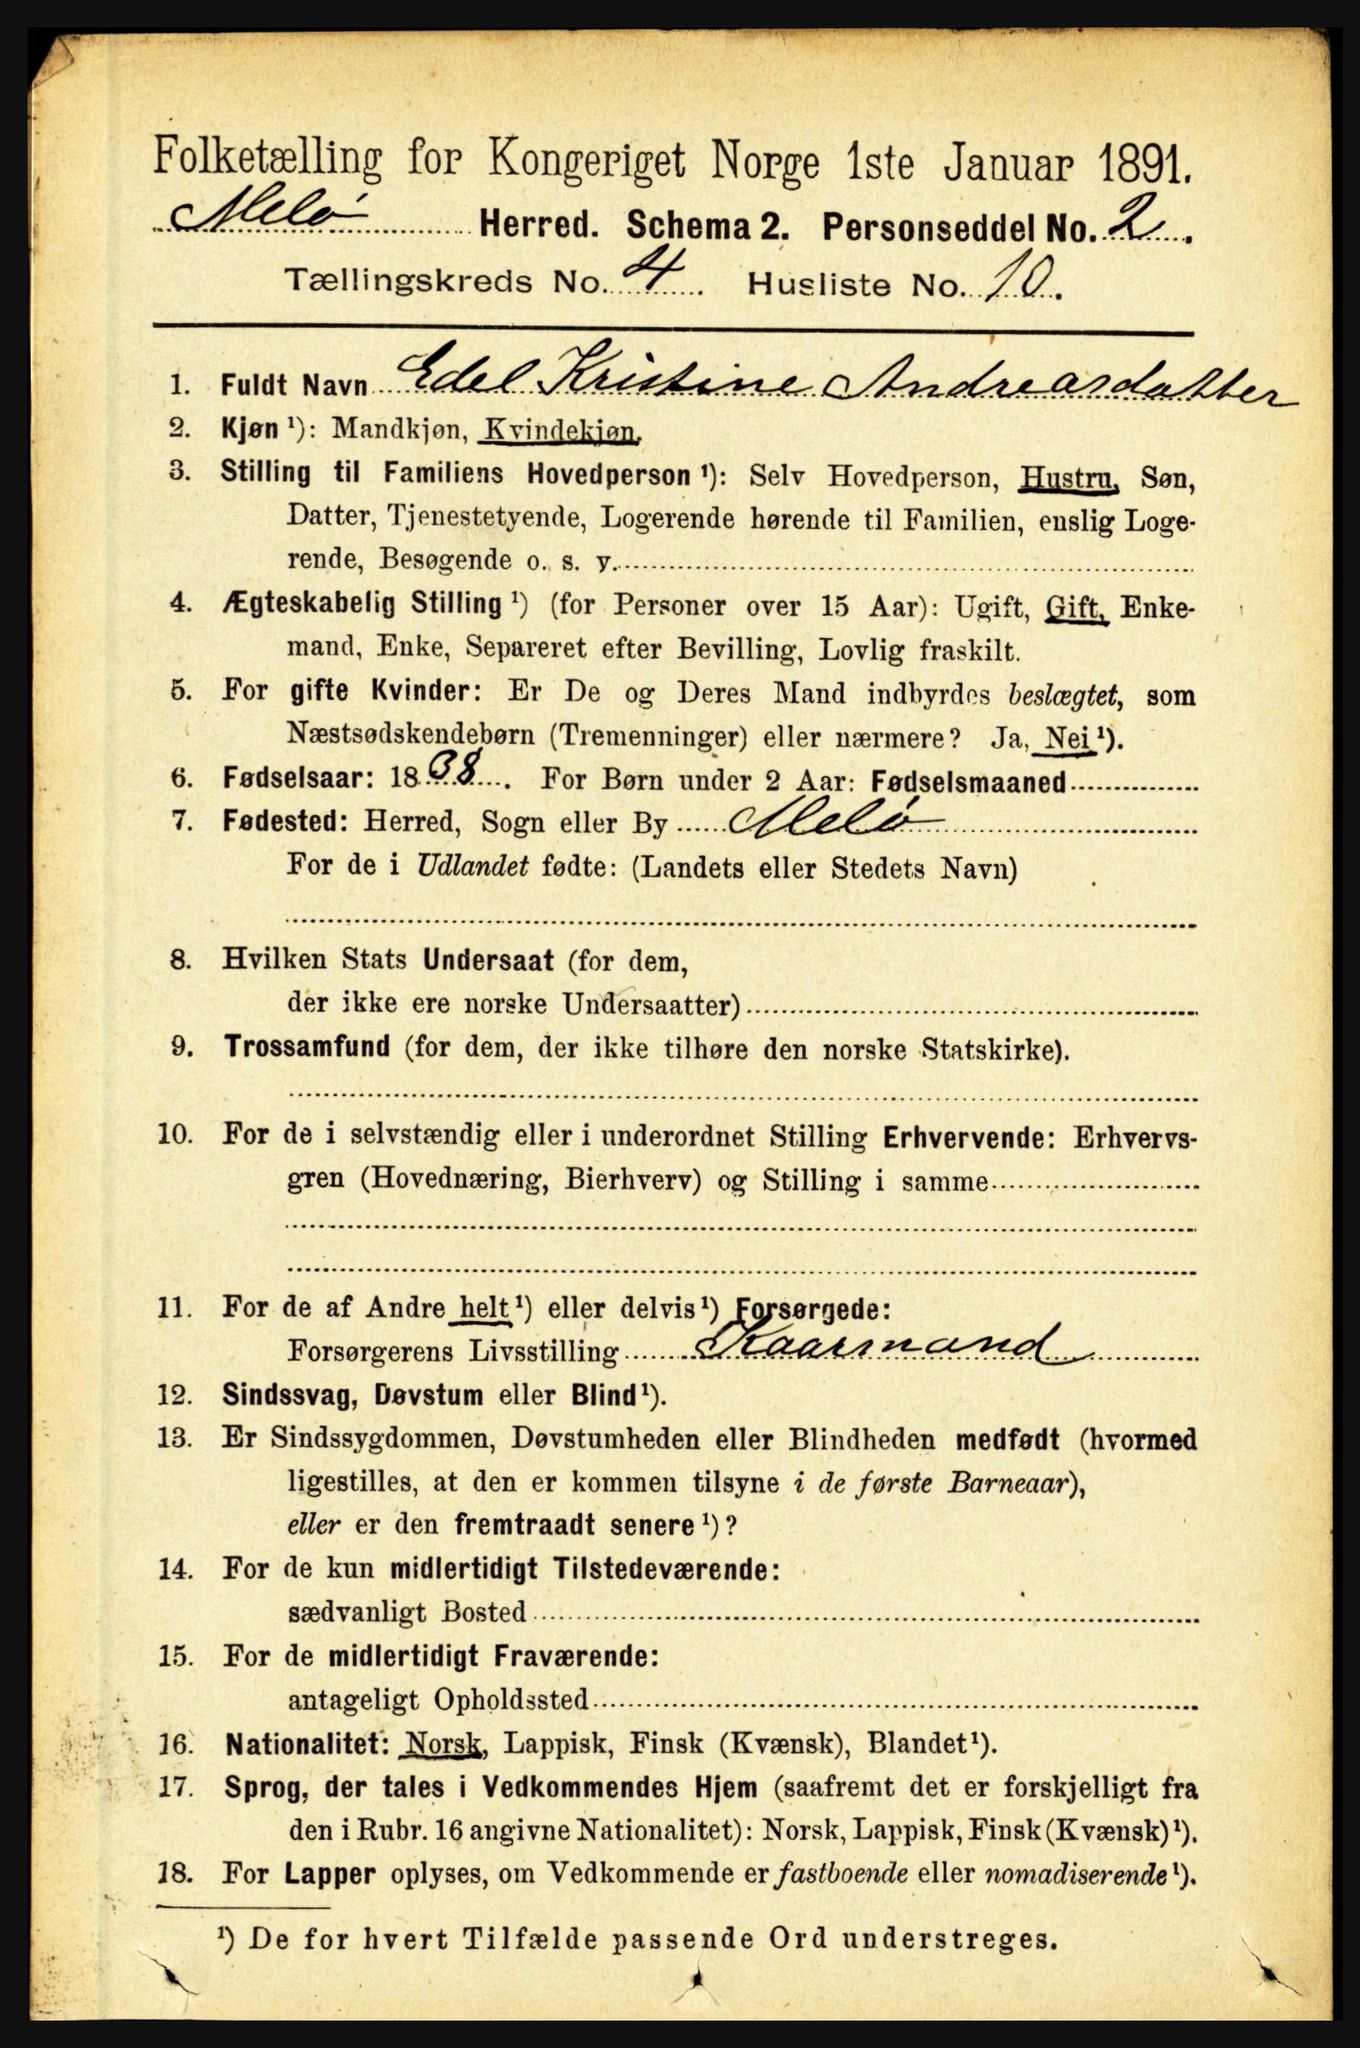 Folketælling for Kongeriget Norge 1ste Januar 1891.
Melö Herred. Schema 2. Personseddel No. 2.
Tællingskreds No. 4. Husliste No. 10.
1. Fuldt Navn Edel Kristine Andreasdatter
2. Kjøn ¹): Mandkjøn, Kvindekjøn.
3. Stilling til Familiens Hovedperson ¹): Selv Hovedperson, Hustru, Søn,
Datter, Tjenestetyende, Logerende hørende til Familien, enslig Loge-
rende, Besøgende o. s. v.
4. Ægteskabelig Stilling ¹) (for Personer over 15 Aar): Ugift, Gift, Enke-
mand, Enke, Separeret efter Bevilling, Lovlig fraskilt.
5. For gifte Kvinder: Er De og Deres Mand indbyrdes beslægtet, som
Næstsødskendebørn (Tremenninger) eller nærmere? Ja, Nei ¹).
6. Fødselsaar: 1838. For Børn under 2 Aar: Fødselsmaaned
7. Fødested: Herred, Sogn eller By Melö
For de i Udlandet fødte: (Landets eller Stedets Navn)
8. Hvilken Stats Undersaat (for dem,
der ikke ere norske Undersaatter)
9. Trossamfund (for dem, der ikke tilhøre den norske Statskirke).
10. For de i selvstændig eller i underordnet Stilling Erhvervende: Erhvervs-
gren (Hovednæring, Bierhverv) og Stilling i samme
11. For de af Andre helt ¹) eller delvis ¹) Forsørgede:
Forsørgerens Livsstilling Kaarmand
12. Sindssvag, Døvstum eller Blind ¹).
13. Er Sindssygdommen, Døvstumheden eller Blindheden medfødt (hvormed
ligestilles, at den er kommen tilsyne i de første Barneaar),
eller er den fremtraadt senere ¹)?
14. For de kun midlertidigt Tilstedeværende:
sædvanligt Bosted
15. For de midlertidigt Fraværende:
antageligt Opholdssted
16. Nationalitet: Norsk, Lappisk, Finsk (Kvænsk), Blandet ¹).
17. Sprog, der tales i Vedkommendes Hjem (saafremt det er forskjelligt fra
den i Rubr. 16 angivne Nationalitet): Norsk, Lappisk, Finsk (Kvænsk) ¹).
18. For Lapper oplyses, om Vedkommende er fastboende eller nomadiserende ¹).
¹) De for hvert Tilfælde passende Ord understreges.